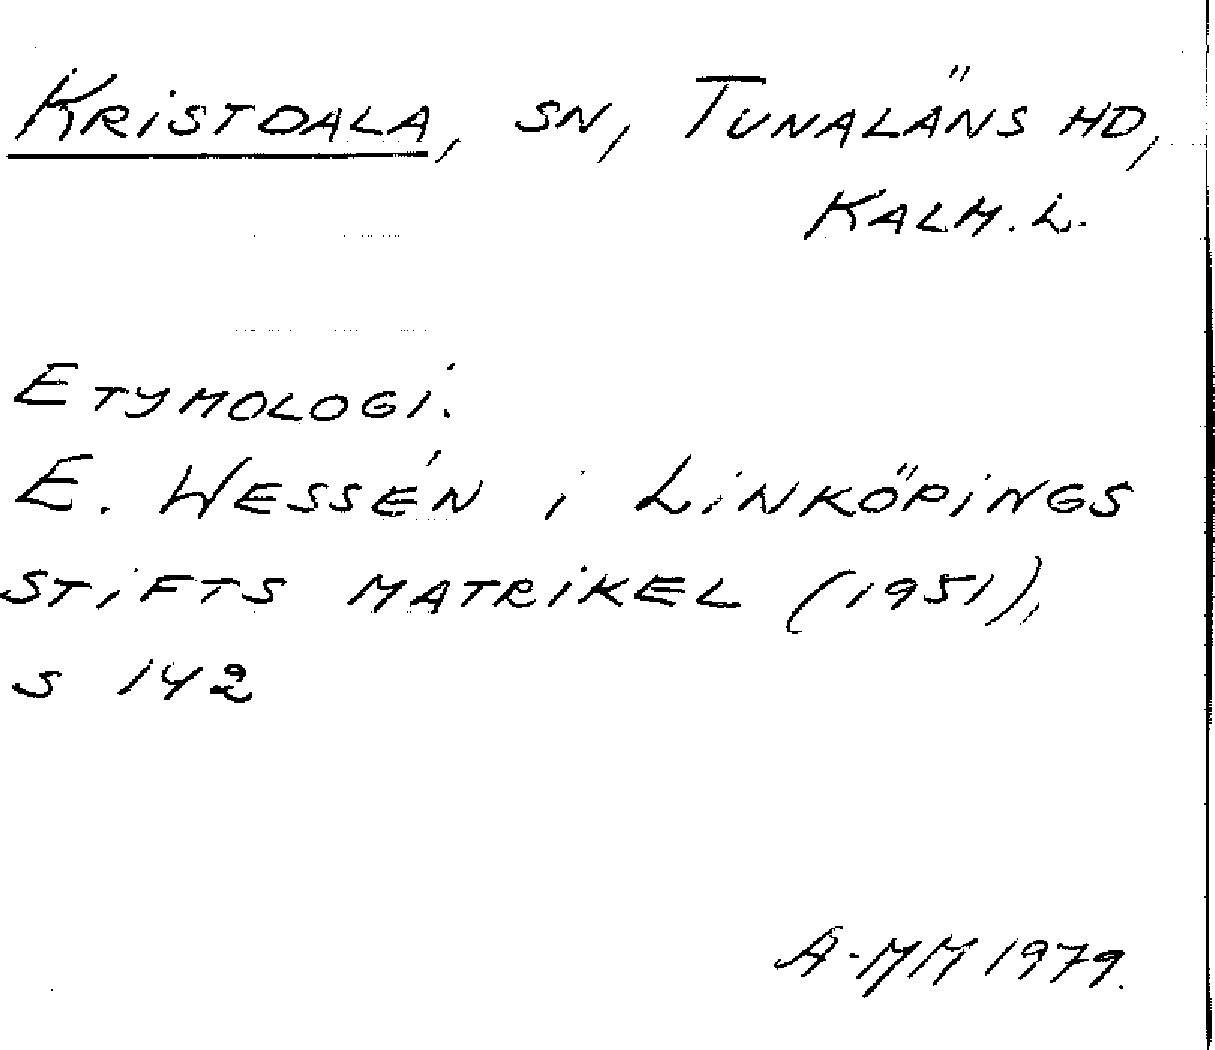 Kristdala, sn, Tunaläns hd,
Kalm. L.
Etymologi.
E. Wessén i Linköpings
stifts matrikel (1951),
s 142
A-MM 1979.